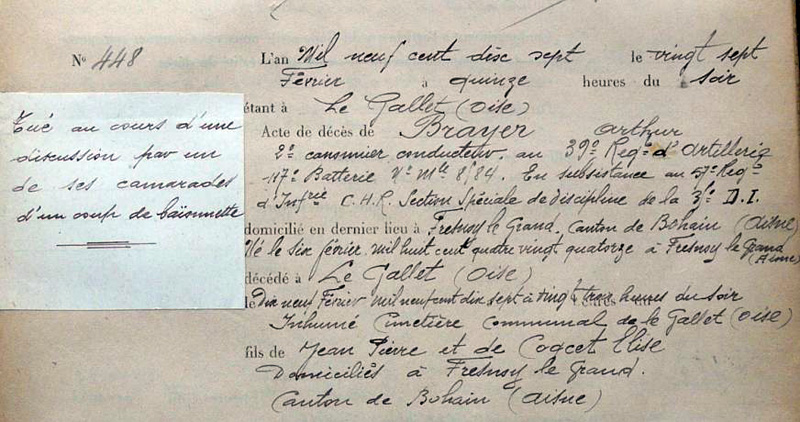 N° 448
Tué au cours d'une
discussion par un
de ses camarades
d'un coup de baïonnette
L'an Mil neuf cent disc sept le vingt sept
Février à quinze heures du soir
étant à Le Gallet (Oise)
Acte de décès de Brayer Arthur
2e canonnier conducteur au 39e Regt d'Artillerie
117e Batterie N° Mle 8/84. En subsistance au Regt
d'Infrie C.H.R. Section Spéciale de discipline de la 3e D.I.
domicilié en dernier lieu à Fresnoy le Grand, Canton de Bohain (Aisne)
Né le six février mil huit cent quatre vingt quatorze à Fresnoy le Grand
(Aisne)
décédé à Le Gallet (Oise)
le Dix neuf Février mil neuf cent dix sept à vingt trois heures du soir
Inhumé Cimetière Communal de le Gallet (Oise)
fils de Jean Pierre et de Cogcet Elise
Domiciliés à Fresnoy le Grand.
Canton de Bohain (Aisne)